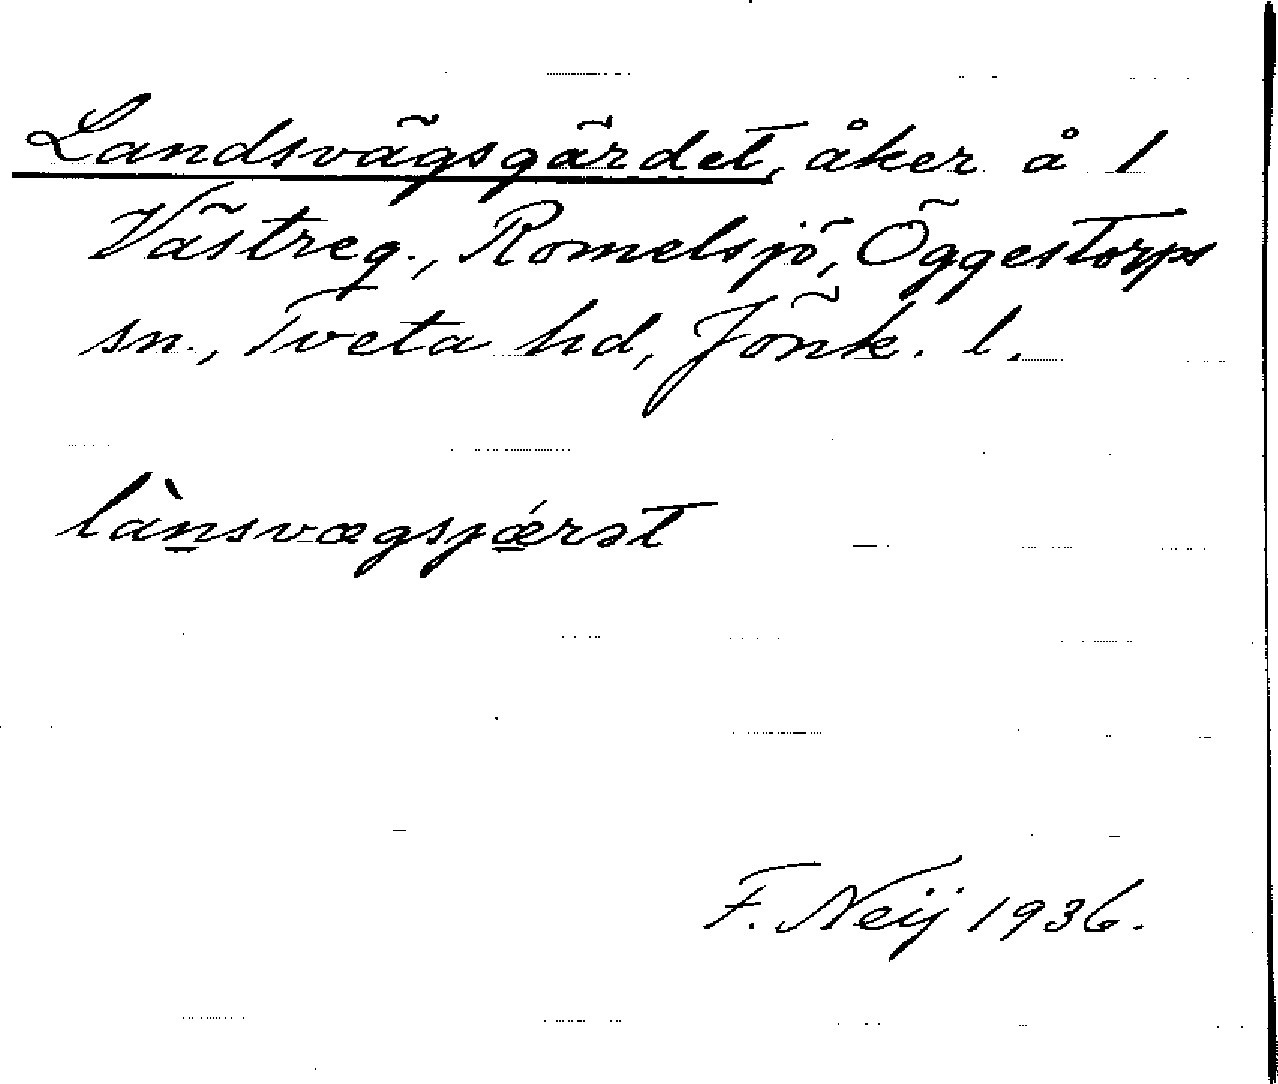 Landsvägsgärdet, åker å 1
Västreg., Romelsjö, Öggestorps
sn., Tveta hd, Jönk. l.
lànsvægsjǽrət
F. Neij 1936.